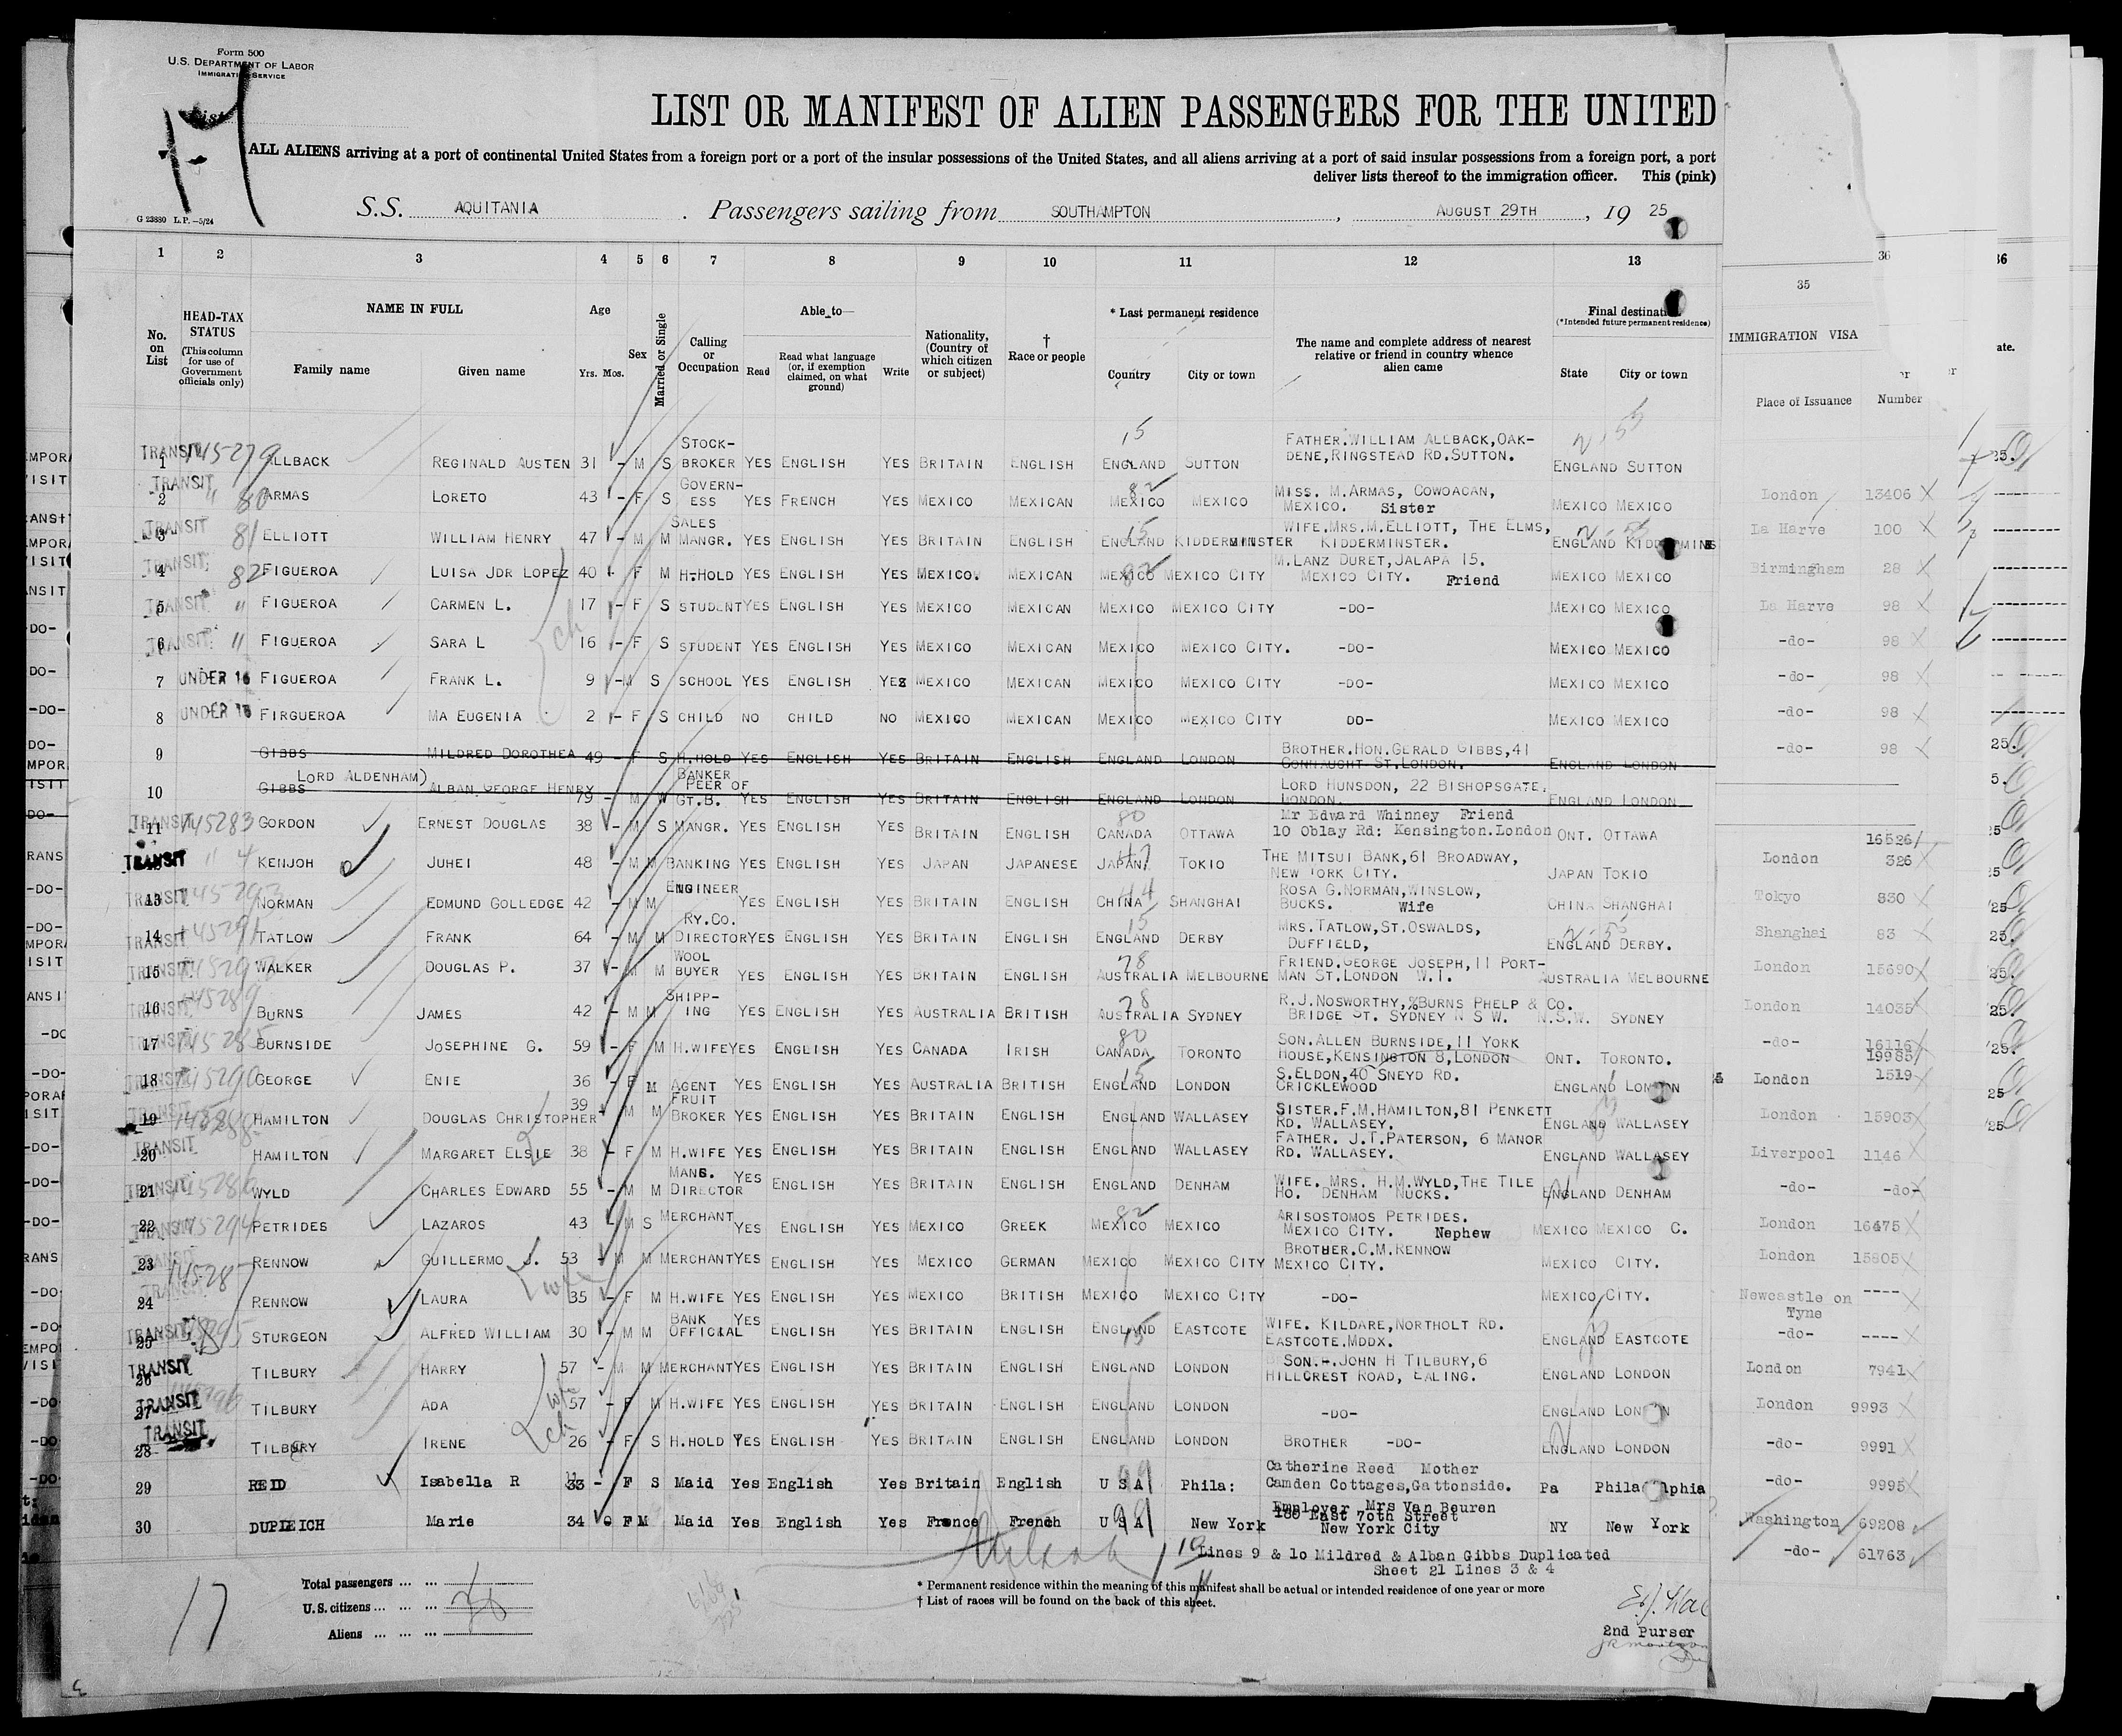 Form 500
U.S. DEPARTMENT OF LABOR
IMMIGRATION SERVICE
LIST OR MANIFEST OF ALIEN PASSENGERS FOR THE UNITED
ALL ALIENS arriving at a port of continental United States from a foreign port or a port of the insular possessions of the United States, and all aliens arriving at a port of said insular possessions from a foreign port, a port
deliver lists thereof to the immigration officer. This (pink)
G 23880 L.P.—5/24
S.S. AQUITANIA . Passengers sailing from SOUTHAMPTON , AUGUST 29TH , 19 25
1 2 3 4 5 6 7 8 9 10 11 12 13 35 36
No. on List
HEAD-TAX STATUS
(This column for use of Government officials only)
NAME IN FULL
Family name Given name
Age
Yrs. Mos.
Sex
Married or Single
Calling or Occupation
Able to—
Read
Read what language (or, if exemption claimed, on what ground)
Write
Nationality, (Country of which citizen or subject)
† Race or people
* Last permanent residence
Country City or town
The name and complete address of nearest relative or friend in country whence alien came
Final destination
(*Intended future permanent residence)
State City or town
IMMIGRATION VISA
Place of Issuance Number
TRANSIT 145279
1 ALLBACK REGINALD AUSTEN 31 - M S STOCK-BROKER YES ENGLISH YES BRITAIN ENGLISH ENGLAND SUTTON FATHER.WILLIAM ALLBACK,OAK-DENE,RINGSTEAD RD.SUTTON. ENGLAND SUTTON
TRANSIT " 80
2 ARMAS LORETO 43 - F S GOVERN-ESS YES FRENCH YES MEXICO MEXICAN MEXICO MEXICO MISS. M.ARMAS, COWOACAN, MEXICO. Sister MEXICO MEXICO London 13406
TRANSIT 81
3 ELLIOTT WILLIAM HENRY 47 - M M SALES MANGR. YES ENGLISH YES BRITAIN ENGLISH ENGLAND KIDDERMINSTER WIFE.MRS.M.ELLIOTT, THE ELMS, KIDDERMINSTER. ENGLAND KIDDERMINS La Harve 100
TRANSIT 82
4 FIGUEROA LUISA JDR LOPEZ 40 - F M H.HOLD YES ENGLISH YES MEXICO. MEXICAN MEXICO MEXICO CITY M.LANZ DURET,JALAPA 15. MEXICO CITY. Friend MEXICO MEXICO Birmingham 28
TRANSIT "
5 FIGUEROA CARMEN L. 17 - F S STUDENT YES ENGLISH YES MEXICO MEXICAN MEXICO MEXICO CITY -DO- MEXICO MEXICO La Harve 98
TRANSIT "
6 FIGUEROA SARA L 16 - F S STUDENT YES ENGLISH YES MEXICO MEXICAN MEXICO MEXICO CITY. -DO- MEXICO MEXICO -do- 98
7 UNDER 16 FIGUEROA FRANK L. 9 - M S SCHOOL YES ENGLISH YES MEXICO MEXICAN MEXICO MEXICO CITY -DO- MEXICO MEXICO -do- 98
8 UNDER 16 FIRGUEROA MA EUGENIA 2 - F S CHILD NO CHILD NO MEXICO MEXICAN MEXICO MEXICO CITY DO- MEXICO MEXICO -do- 98
9 GIBBS MILDRED DOROTHEA 49 - F S H.HOLD YES ENGLISH YES BRITAIN ENGLISH ENGLAND LONDON BROTHER.HON.GERALD GIBBS,41 CONNAUGHT ST.LONDON. ENGLAND LONDON -do- 98
10 GIBBS LORD ALDENHAM) ALBAN GEORGE HENRY 79 - M W BANKER PEER OF GT.B. YES ENGLISH YES BRITAIN ENGLISH ENGLAND LONDON LORD HUNSDON, 22 BISHOPSGATE. LONDON. ENGLAND LONDON
TRANSIT 145283
11 GORDON ERNEST DOUGLAS 38 - M S MANGR. YES ENGLISH YES BRITAIN ENGLISH CANADA OTTAWA Mr Edward Whinney Friend 10 Oblay Rd: Kensington.London ONT. OTTAWA 16526
TRANSIT " 4
KENJOH JUHEI 48 - M M BANKING YES ENGLISH YES JAPAN JAPANESE JAPAN TOKIO THE MITSUI BANK,61 BROADWAY, NEW YORK CITY. JAPAN TOKIO London 326
TRANSIT 145293
13 NORMAN EDMUND GOLLEDGE 42 - M M ENGINEER YES ENGLISH YES BRITAIN ENGLISH CHINA SHANGHAI ROSA G.NORMAN,WINSLOW, BUCKS. Wife CHINA SHANGHAI Tokyo 830
TRANSIT
14 TATLOW FRANK 64 - M M RY.CO. DIRECTOR YES ENGLISH YES BRITAIN ENGLISH ENGLAND DERBY MRS.TATLOW,ST.OSWALDS, DUFFIELD, ENGLAND DERBY. Shanghai 83
TRANSIT
15 WALKER DOUGLAS P. 37 - M M WOOL BUYER YES ENGLISH YES BRITAIN ENGLISH AUSTRALIA MELBOURNE FRIEND.GEORGE JOSEPH,11 PORT-MAN ST.LONDON W.1. AUSTRALIA MELBOURNE London 15690
TRANSIT 145289
16 BURNS JAMES 42 - M M SHIPP-ING YES ENGLISH YES AUSTRALIA BRITISH AUSTRALIA SYDNEY R.J.NOSWORTHY,%BURNS PHELP & CO. BRIDGE ST. SYDNEY N S W. N.S.W. SYDNEY London 14035
TRANSIT 145285
17 BURNSIDE JOSEPHINE G. 59 - F M H.WIFE YES ENGLISH YES CANADA IRISH CANADA TORONTO SON.ALLEN BURNSIDE,11 YORK HOUSE,KENSINGTON 8,LONDON ONT. TORONTO. -do- 16116 19985
TRANSIT 145290
18 GEORGE ENIE 36 - F M AGENT YES ENGLISH YES AUSTRALIA BRITISH ENGLAND LONDON S.ELDON,40 SNEYD RD. CRICKLEWOOD ENGLAND LONDON London 1519
TRANSIT 145288
19 HAMILTON DOUGLAS CHRISTOPHER 39 M M FRUIT BROKER YES ENGLISH YES BRITAIN ENGLISH ENGLAND WALLASEY SISTER.F.M.HAMILTON,81 PENKETT RD. WALLASEY. ENGLAND WALLASEY London 15903
TRANSIT
20 HAMILTON MARGARET ELSIE 38 - F M H.WIFE YES ENGLISH YES BRITAIN ENGLISH ENGLAND WALLASEY FATHER. J.T.PATERSON, 6 MANOR RD. WALLASEY. ENGLAND WALLASEY Liverpool 1146
TRANSIT 145286
21 WYLD CHARLES EDWARD 55 - M M MANG. DIRECTOR YES ENGLISH YES BRITAIN ENGLISH ENGLAND DENHAM WIFE. MRS. H.M.WYLD,THE TILE HO. DENHAM NUCKS. ENGLAND DENHAM -do- -do-
TRANSIT 145294
22 PETRIDES LAZAROS 43 - M S MERCHANT YES ENGLISH YES MEXICO GREEK MEXICO MEXICO ARISOSTOMOS PETRIDES. MEXICO CITY. Nephew MEXICO MEXICO C. London 16475
TRANSIT 145287
23 RENNOW GUILLERMO J. 53 - M M MERCHANT YES ENGLISH YES MEXICO GERMAN MEXICO MEXICO CITY BROTHER.C.M.RENNOW MEXICO CITY. MEXICO CITY. London 15805
TRANSIT
24 RENNOW LAURA 35 - F M H.WIFE YES ENGLISH YES MEXICO BRITISH MEXICO MEXICO CITY -DO- MEXICO CITY. Newcastle on Tyne ----
TRANSIT
25 STURGEON ALFRED WILLIAM 30 - M M BANK OFFICIAL YES ENGLISH YES BRITAIN ENGLISH ENGLAND EASTCOTE WIFE. KILDARE,NORTHOLT RD. EASTCOTE.MDDX. ENGLAND EASTCOTE -do- ----
TRANSIT
26 TILBURY HARRY 57 - M M MERCHANT YES ENGLISH YES BRITAIN ENGLISH ENGLAND LONDON SON.-.JOHN H TILBURY,6 HILLCREST ROAD, EALING. ENGLAND LONDON London 7941
TRANSIT
27 TILBURY ADA 57 - F M H.WIFE YES ENGLISH YES BRITAIN ENGLISH ENGLAND LONDON -DO- ENGLAND LONDON London 9993
TRANSIT
28 TILBURY IRENE 26 - F S H.HOLD YES ENGLISH YES BRITAIN ENGLISH ENGLAND LONDON BROTHER -DO- ENGLAND LONDON -do- 9991
29 REID Isabella R 33 - F S Maid Yes English Yes Britain English U S A Phila: Catherine Reed Mother Camden Cottages,Gattonside. Pa Philadelphia -do- 9995
30 DUPLEICH Marie 34 0 F M Maid Yes English Yes France French U S A New York Employer Mrs Van Beuren East 70th Street New York City NY New York Washington 69208
-do- 61763
Lines 9 & 10 Mildred & Alban Gibbs Duplicated
Sheet 21 Lines 3 & 4
Total passengers ... ...
U.S. citizens ... ... ...
Aliens ... ... ...
17
* Permanent residence within the meaning of this manifest shall be actual or intended residence of one year or more
† List of races will be found on the back of this sheet.
2nd Purser